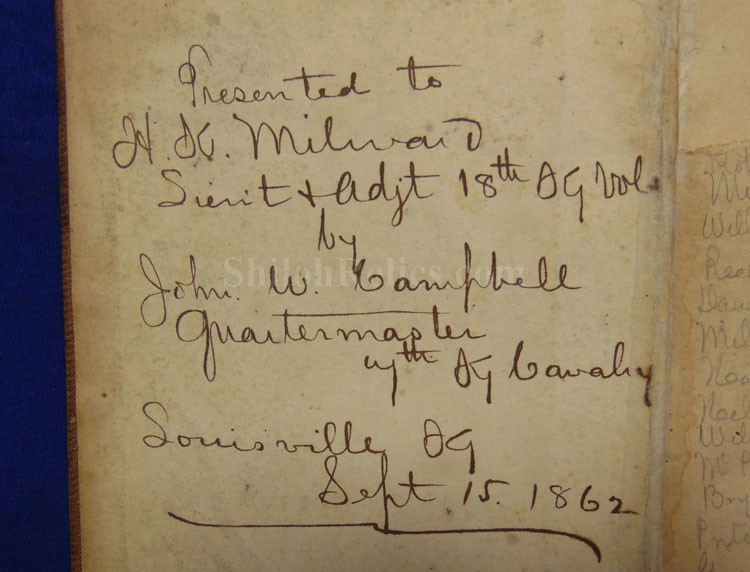 Presented to
H. K. Milward
Lieut & Adjt 18th Ky Vol.
by
John. W. Campbell
Quartermaster
7th Ky Cavalry
Louisville Ky
Sept. 15. 1862
ShilohRelics.com
Will